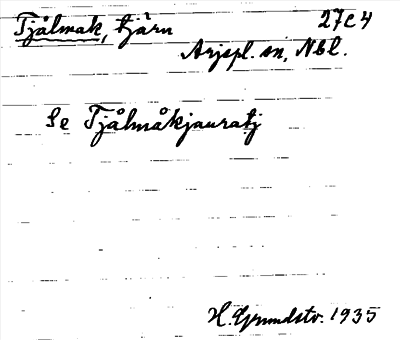 Tjålmak, tjärn 27C4
Arjspl. sn, Nbl.
Se Tjålmåkjauratj
H. Grundstr. 1935